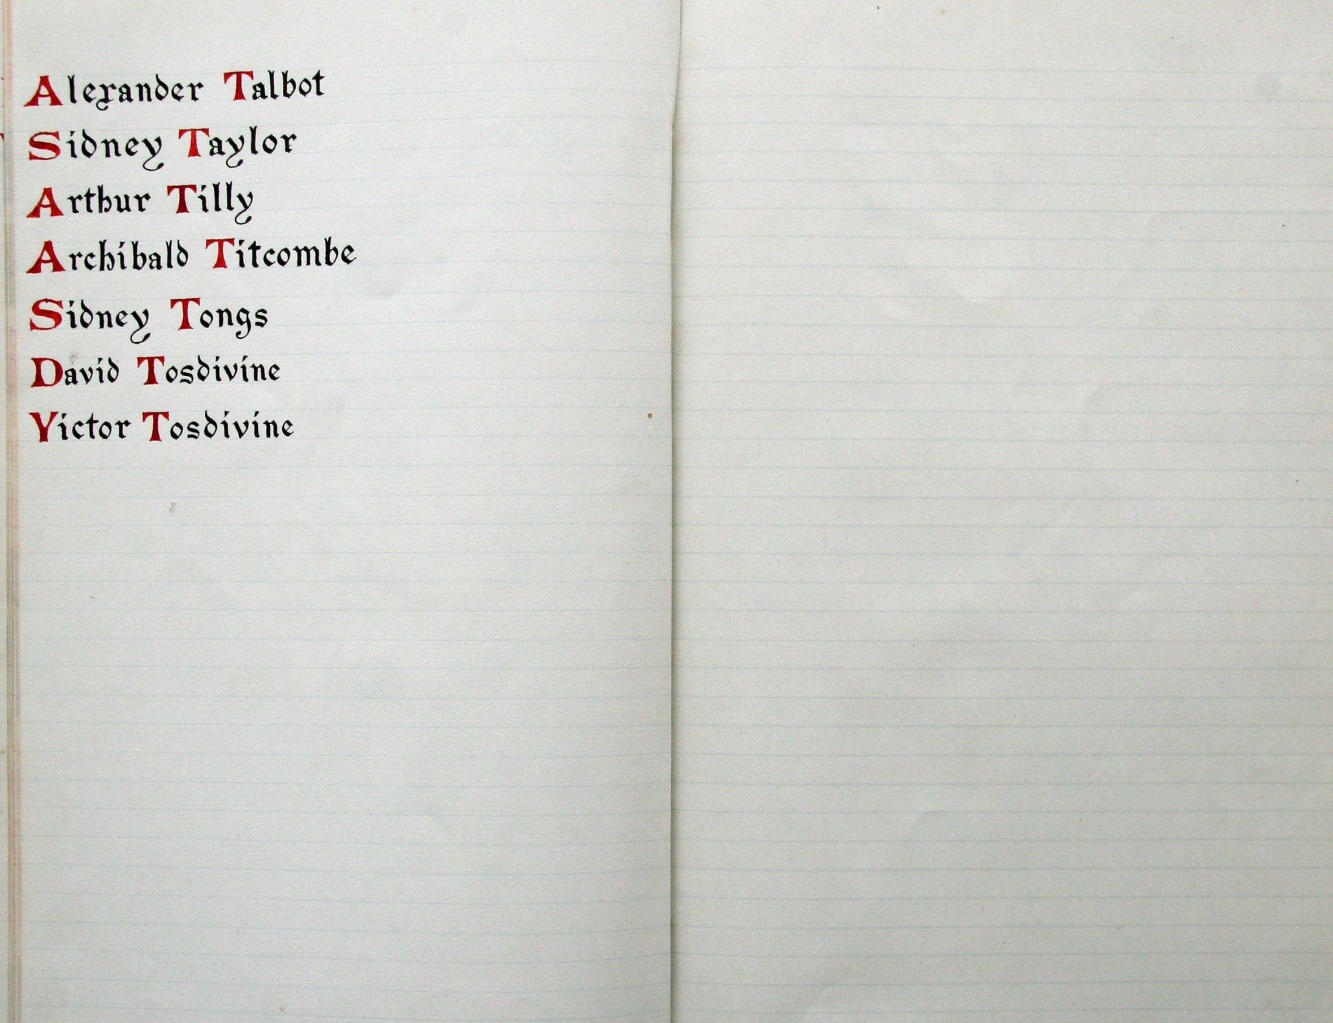 Alexander Talbot
Sidney Taylor
Arthur Tilly
Archibald Titcombe
Sidney Tongs
David Tosdivine
Victor Tosdivine